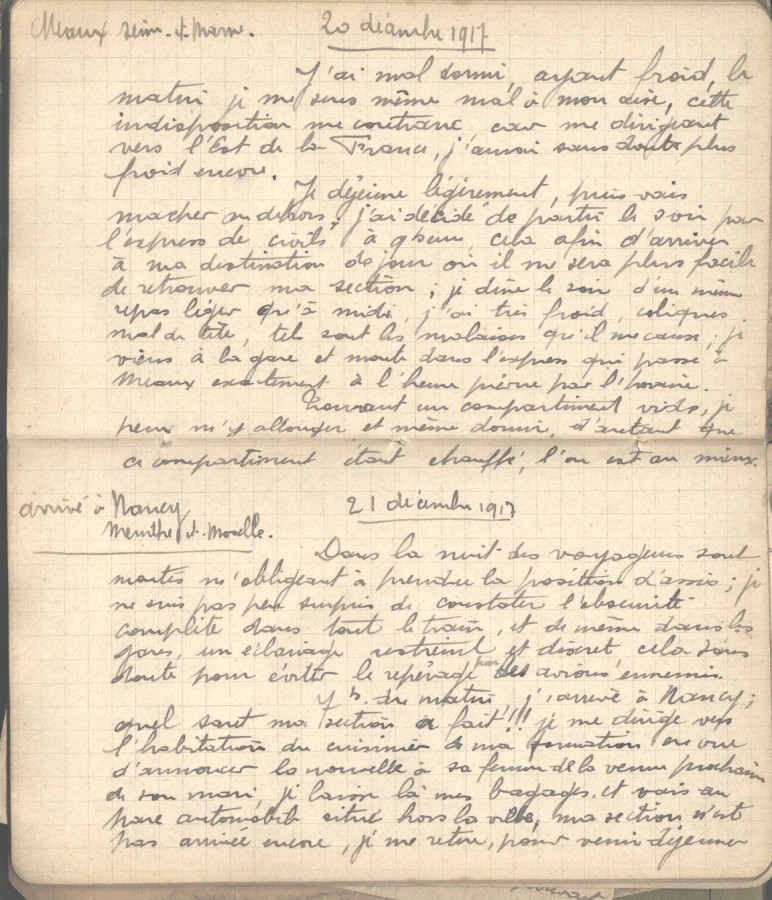 Meaux Seine-et-Marne. 20 décembre 1917
J'ai mal dormi, ayant froid, le
matin je me sens même mal à mon aise, cette
indisposition me contrarie, car me dirigeant
vers l'Est de la France, j'aurai sans doute plus
froid encore.
Je déjeune légèrement, puis vais
marcher au dehors; j'ai décidé de partir le soir par
l'express de civils à 9 heures, cela afin d'arriver
à ma destination de jour où il me sera plus facile
de retrouver ma section; je dîne le soir d'un même
repas léger qu'à midi, j'ai très froid, coliques
mal de tête, tels sont les malaises qu'il me cause; je
viens à la gare et monte dans l'express qui passe à
Meaux exactement à l'heure prévue par l'horaire.
Trouvant un compartiment vide, je
peux m'y allonger et même dormir, d'autant que
ce compartiment étant chauffé, l'on est au mieux.
arrivé à Nancy 21 décembre 1917
Meurthe-et-Moselle.
Dans la nuit des voyageurs sont
montés m'obligeant à prendre la position d'assis; je
ne suis pas peu surpris de constater l'obscurité
complète dans tout le train, et de même dans les
gares, un éclairage restreint et discret, cela sans
doute pour éviter le repérage par des avions ennemis.
h. du matin, j'arrive à Nancy;
quel saut ma section a fait!!! je me dirige vers
l'habitation du cuisinier de ma formation en vue
d'annoncer la nouvelle à sa femme de la venue prochaine
de son mari, je laisse là mes bagages, et vais au
parc automobile situé hors la ville, ma section n'est
pas arrivée encore, je me retire, pour venir déjeuner